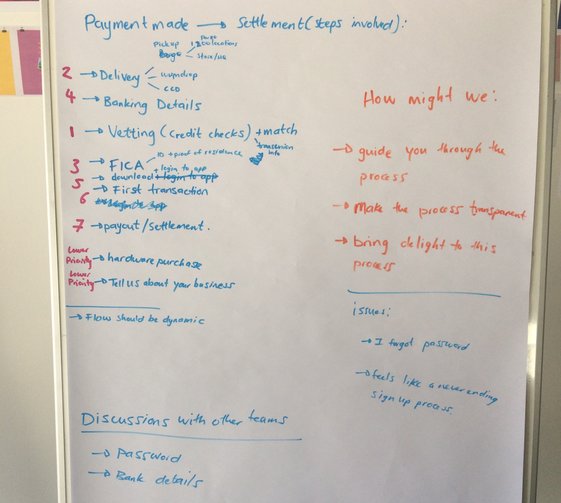 Payment made → Settlement (steps involved):
pickup
Store/HQ
2 → Delivery
wumdrop
CCD
4 → Banking Details
1 → Vetting (credit checks) + match
transaction
info
3 → FICA
ID + proof of residence
+ login to app
5 → download + login to app
→ First transaction
6
7 → payout/settlement.
Lower
Priority → hardware purchase
Lower
Priority → Tell us about your business
→ Flow should be dynamic
Discussions with other teams
→ Password
→ Bank details
How might we:
→ guide you through the
process
→ Make the process transparent
→ bring delight to this
process
issues:
→ I forgot password
→ feels like a never ending
sign up process.